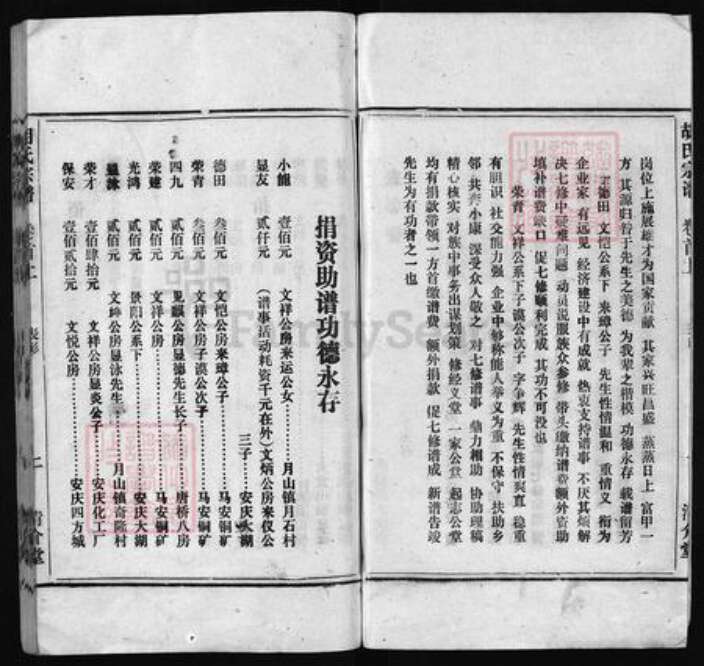 胡氏宗谱 卷首上
清介堂
岗位上施展雄才为国家贡献 其家兴旺昌盛 蒸蒸日上 富甲一
方 其源归咎于先生之美德 为我辈之楷模 功德永存 载谱留芳
德田 文恺公系下 来璋公子 先生性情温和 重情义 衔为
企业家 有远见 经济建设中有成就 热衷支持谱事 不厌其烦解
决七修中疑难问题 动员说服族众参修 带头缴纳谱费额外资助
填补谱费缺口 促七修顺利完成 其功不可没也
荣青 文祥公系下子谟公次子 字争辉 先生性情爽直 稳重
有胆识 社交能力强 企业中够称能人 举义为重 不保守 扶助乡
邻 共奔小康 深受众人敬之 对七修谱事 鼎力相助 协助理稿
精心核实 对族中事务出谋划策 修经义堂 一家公祭 起志公堂
均有捐款带领一方首缴谱费 额外捐款 促七修谱成 新谱告竣
先生为有功者之一也
捐资助谱功德永存
小能 壹佰元 文祥公房来运公女 月山镇月石村
显友 贰仟元 (谱事活动耗资千元在外)文炳公房来仪公
三子 安庆大湖
德田 叁佰元 文恺公房来璋公子 马安铜矿
荣青 叁佰元 文祥公房子谟公次子 马安铜矿
四九 贰佰元 见麒公房显德先生长子 唐桥八房
荣建 贰佰元 文祥公房 马安铜矿
光鸿 贰佰元 景阳公系下 安庆大湖
显泳 贰佰元 文坤公房显泳先生 月山镇奇隆村
荣才 壹佰肆拾元 文祥公房显炎公子 安庆化工厂
保安 壹佰贰拾元 文悦公房 安庆四方城
胡氏宗谱 卷首上
二
清介堂
FamilySearch